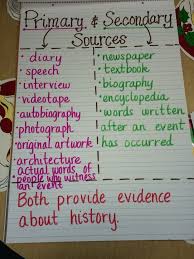 Primary & Secondary
Sources
• diary
• speech
• interview
• videotape
• autobiography
• photograph
• original artwork
• architecture
actual words of
• people who witness
an event
• newspaper
• textbook
• biography
• encyclopedia
• words written
after an event
has occurred
Both provide evidence
about history.